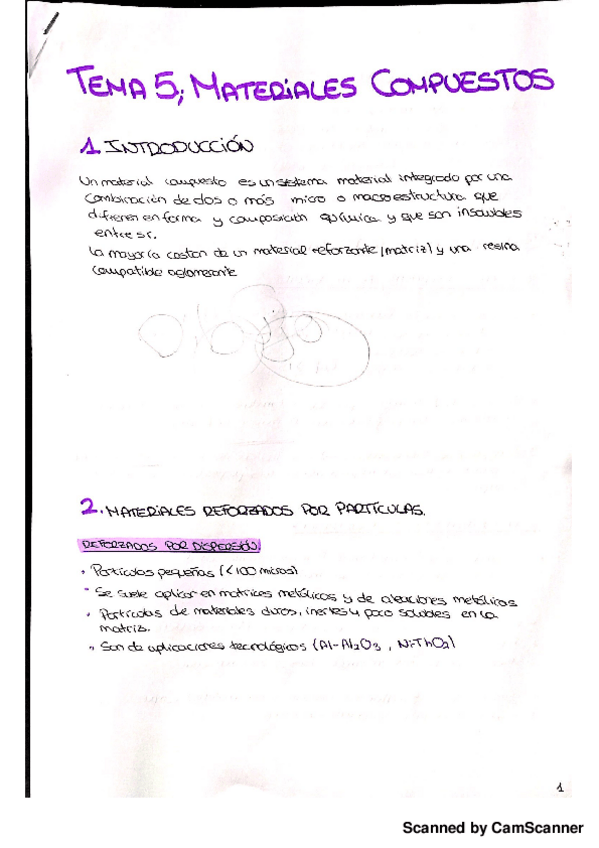 TEMA 5; MATERIALES COMPUESTOS
1. INTRODUCCIÓN
Un material compuesto es un sistema material integrado por una
combinación de dos o más micro o macroestructura que
difieren en forma y composición química y que son insolubles
entre sí.
La mayoría constan de un material reforzante (matriz) y una resina
compatible aglomerante
Dibujo
2. MATERIALES REFORZADOS POR PARTÍCULAS.
REFORZADOS POR DISPERSIÓN.
• Partículas pequeñas (<100 micras)
• Se suele aplicar en matrices metálicas y de aleaciones metálicas
• Partículas de materiales duros, inertes y poco solubles en la
matriz.
• Son de aplicaciones tecnológicas (Al-Al2O3, Ni-ThO2)
1
Scanned by CamScanner